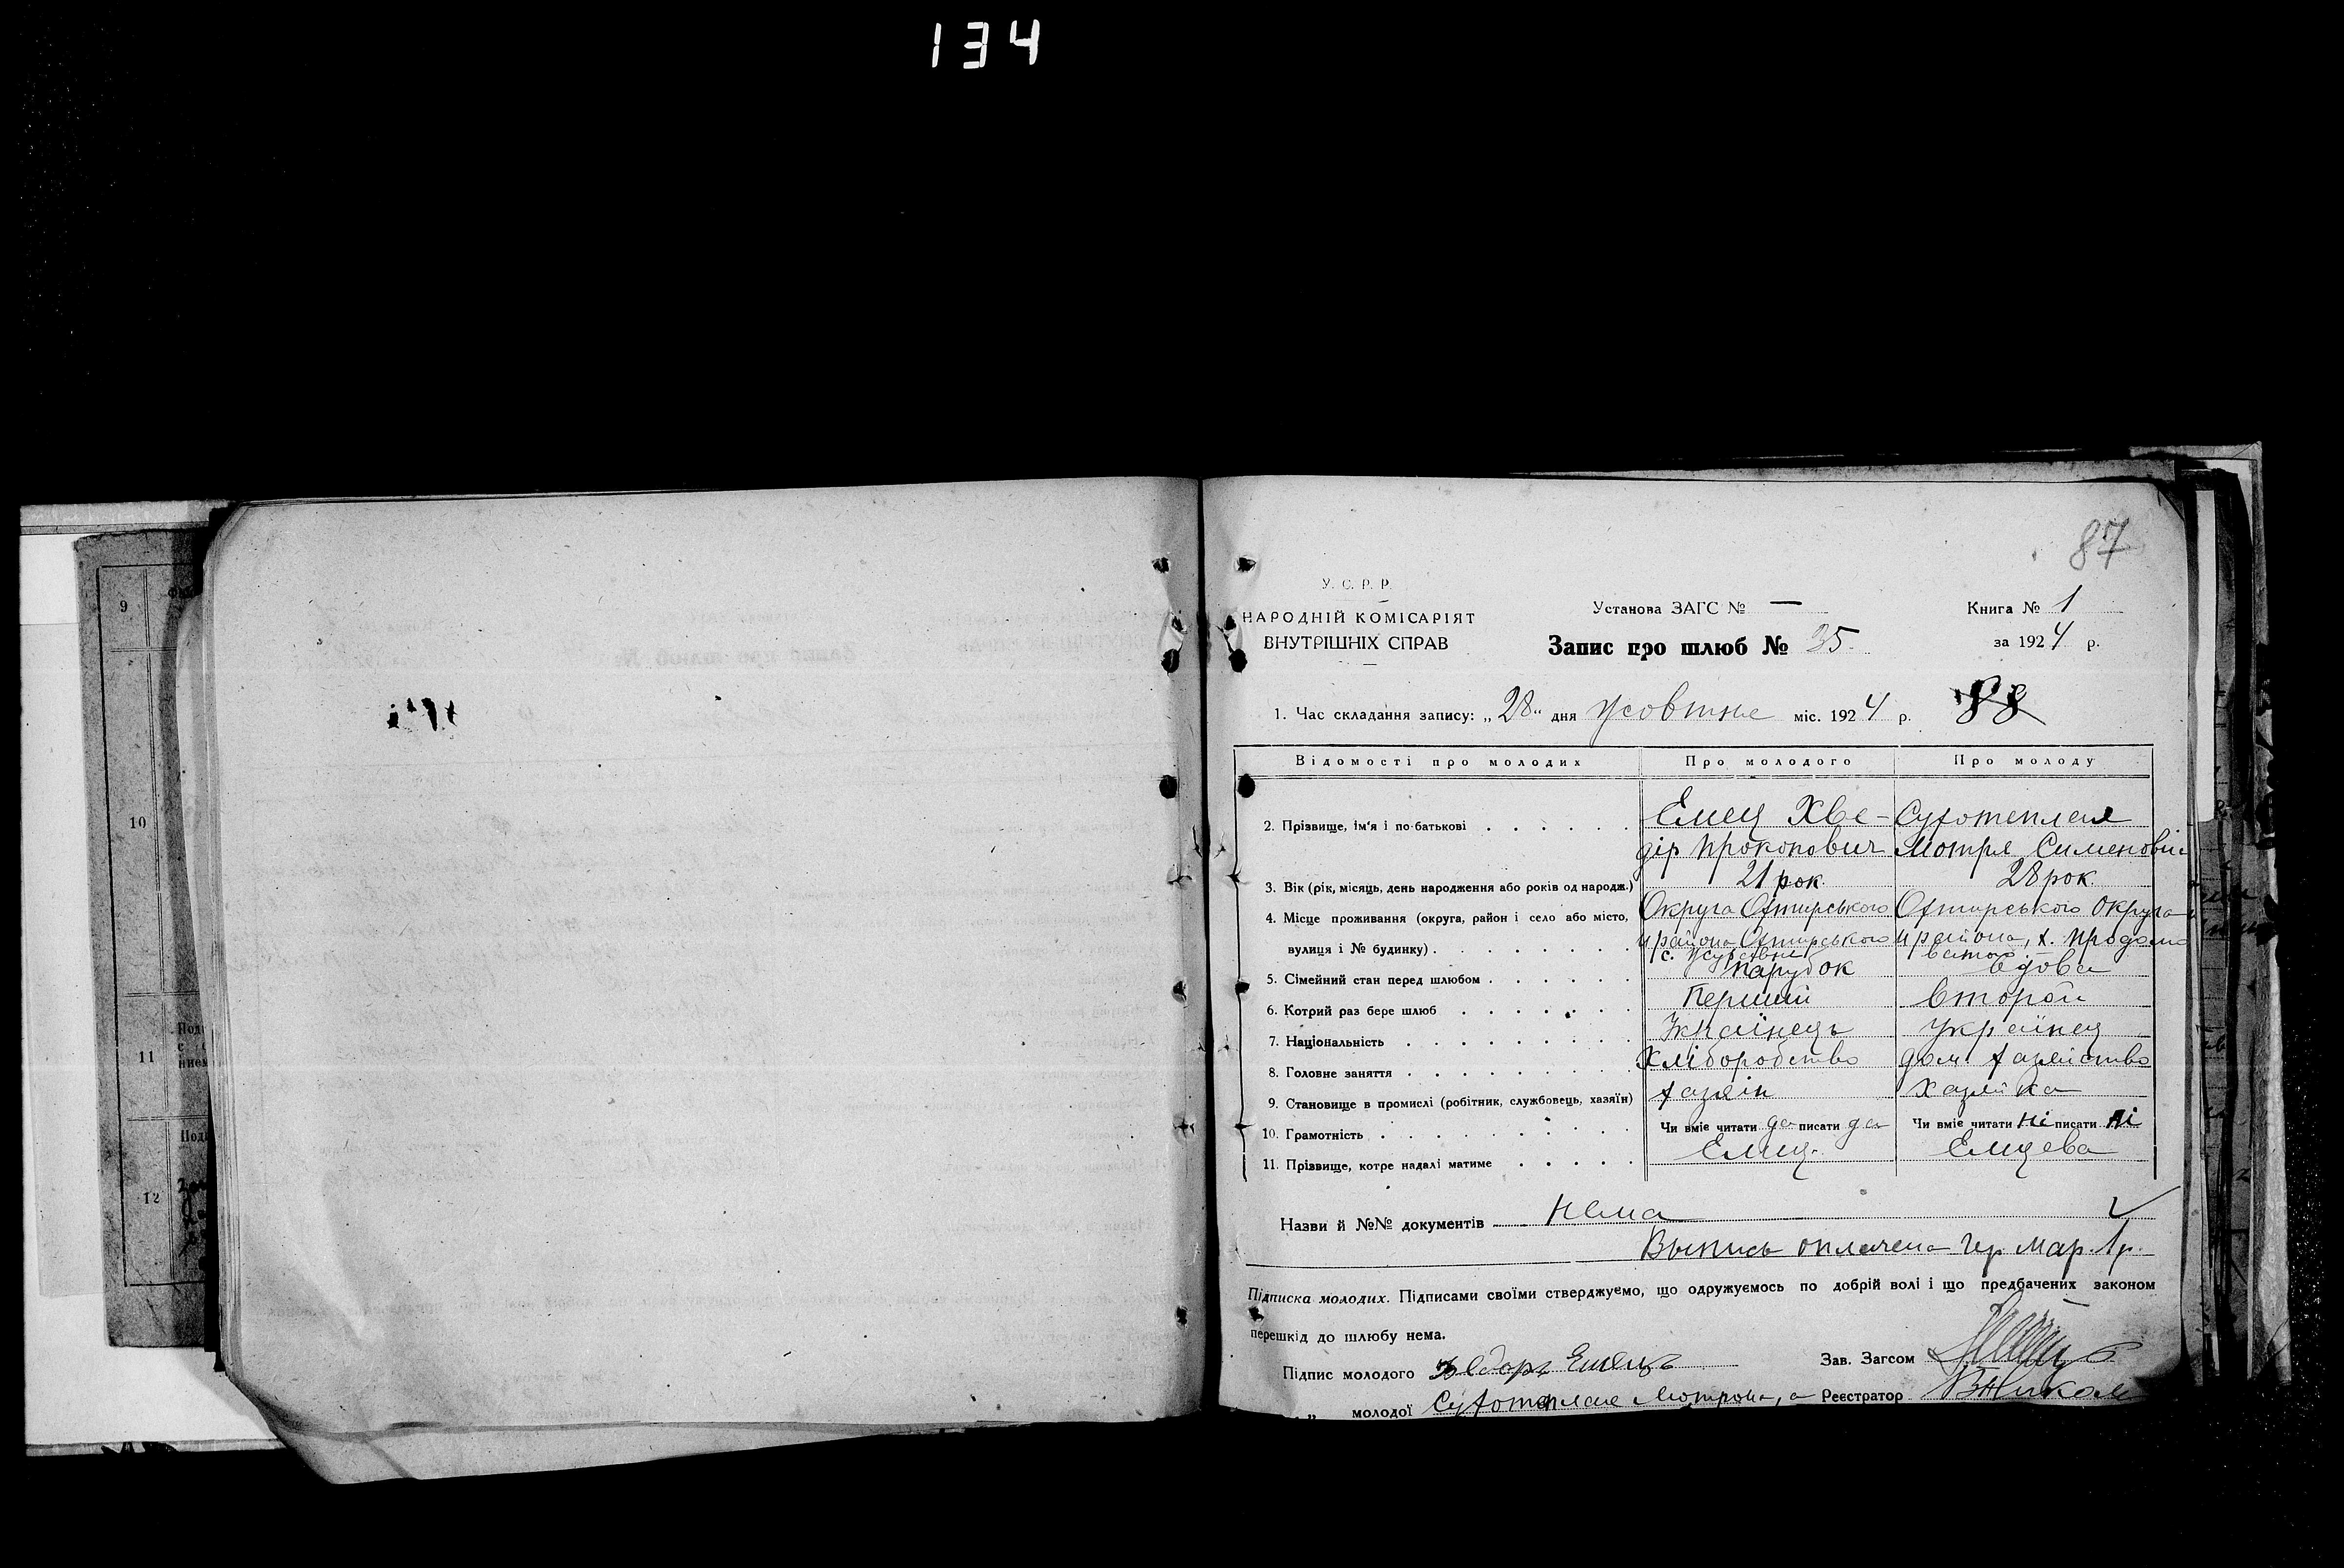 134
9
10
11
12
87
У. С. Р. Р.
НАРОДНІЙ КОМІСАРІЯТ
ВНУТРІШНІХ СПРАВ
Установа ЗАГС № —
Запис про шлюб № 35.
Книга № 1
за 1924 р.
1. Час складання запису: „28" дня жовтня міс. 1924 р. 88
Відомості про молодих Про молодого Про молоду
2. Прізвище, ім'я і по-батькові Емец Хве- Сухотеплая
дір Прокопович Мотря Сименовні
3. Вік (рік, місяць, день народження або років од народж.) 21 рок. 28 рок.
4. Місце проживання (округа, район і село або місто, Округа Охтирського Охтирського округа
вулиця і № будинку) и района Охтирського и района, х.
с.
5. Сімейний стан перед шлюбом парубок вдова
6. Котрий раз бере шлюб Перший второй
7. Національність Українець Українец
8. Головне заняття Хліборобство дом хазяйство
9. Становище в промислі (робітник, службовець, хазяїн) хазяін хазяйка
10. Грамотність Чи вміє читати да писати да Чи вміє читати ні писати ні
11. Прізвище, котре надалі матиме Емец. Емцева
Назви й №№ документів нема
Выпись оплачена гер. мар. 1 р.
Підписка молодих. Підписами своїми стверджуємо, що одружуємось по добрій волі і що предбачених законом
перешкід до шлюбу нема.
Підпис молодого Хведоръ Емецъ Зав. Загсом
„ молодої Сухотеплая Мотрона, а Реєстратор